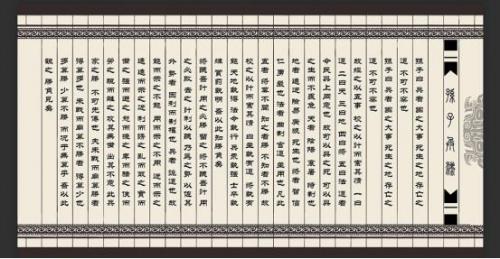 孫子兵法
孫子曰 兵者國之大事 死生之地 存亡之
道 不可不察也
孫子曰 兵者國之大事 死生之地 存亡之
道 不可不察也
故經之以五事 校之以計而索其情 一曰
道 二曰天 三曰地 四曰將 五曰法 道者
令民與上同意也 故可以與之死 可以與
之生 而不畏危 天者 陰陽 寒暑 時制也
地者 遠近 險易 廣狹 死生也 將者 智信
仁勇嚴也 法者 曲制 官道 主用也 凡此
五者 將莫不聞 知之者勝 不知者不勝 故
校之以計而索其情 曰 主孰有道 將孰有
能 天地孰得 法令孰行 兵眾孰強 士卒孰
練 賞罰孰明 吾以此知勝負矣
將聽吾計 用之必勝 留之 將不聽吾計 用
之必敗 去之 計利以聽 乃爲之勢 以佐其
外 勢者 因利而制權也 兵者 詭道也 故
能而示之不能 用而示之不用 近而示之
遠 遠而示之近 利而誘之 亂而取之 實而
備之 強而避之 怒而撓之 卑而驕之 佚而
勞之 親而離之 攻其無備 出其不意 此兵
家之勝 不可先傳也 夫未戰而廟算勝者
得算多也 未戰而廟算不勝者 得算少也
多算勝 少算不勝 而況于無算乎 吾以此
觀之 勝負見矣